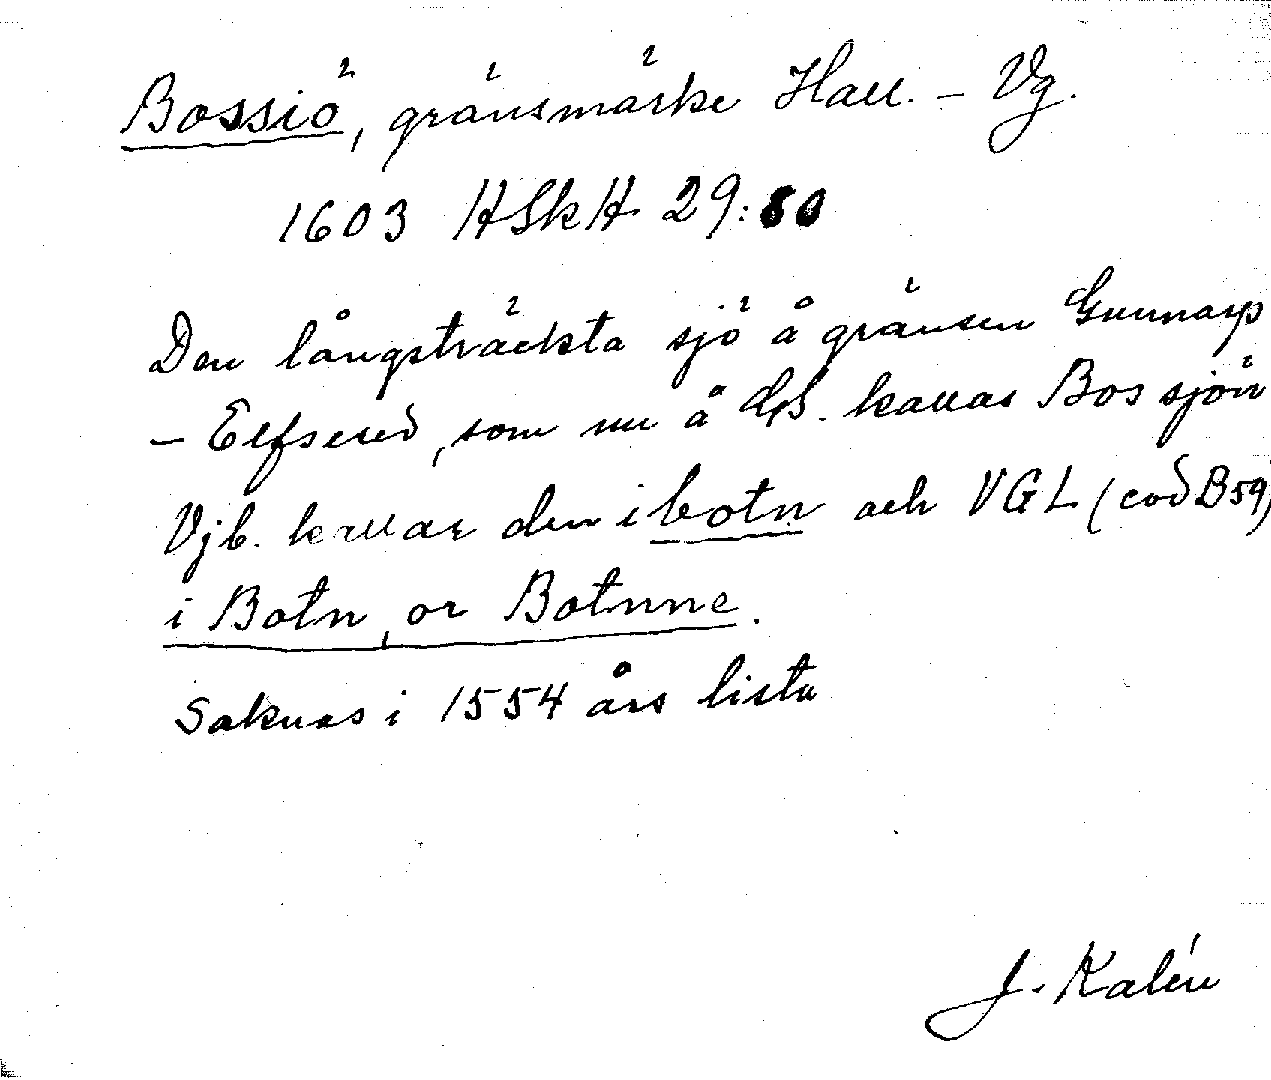 Bossiö, gränsmärke Hall. – Vg.
1603 HSkH 29:80
Den långsträckta sjö å gränsen Gunnarp
– Elfsered, som nu å GS. kallas Bossjön
Vjb. kallar den i botn och VGL (cod B59)
i Botn, or Botnne.
Saknas i 1554 års lista
J. Kalén